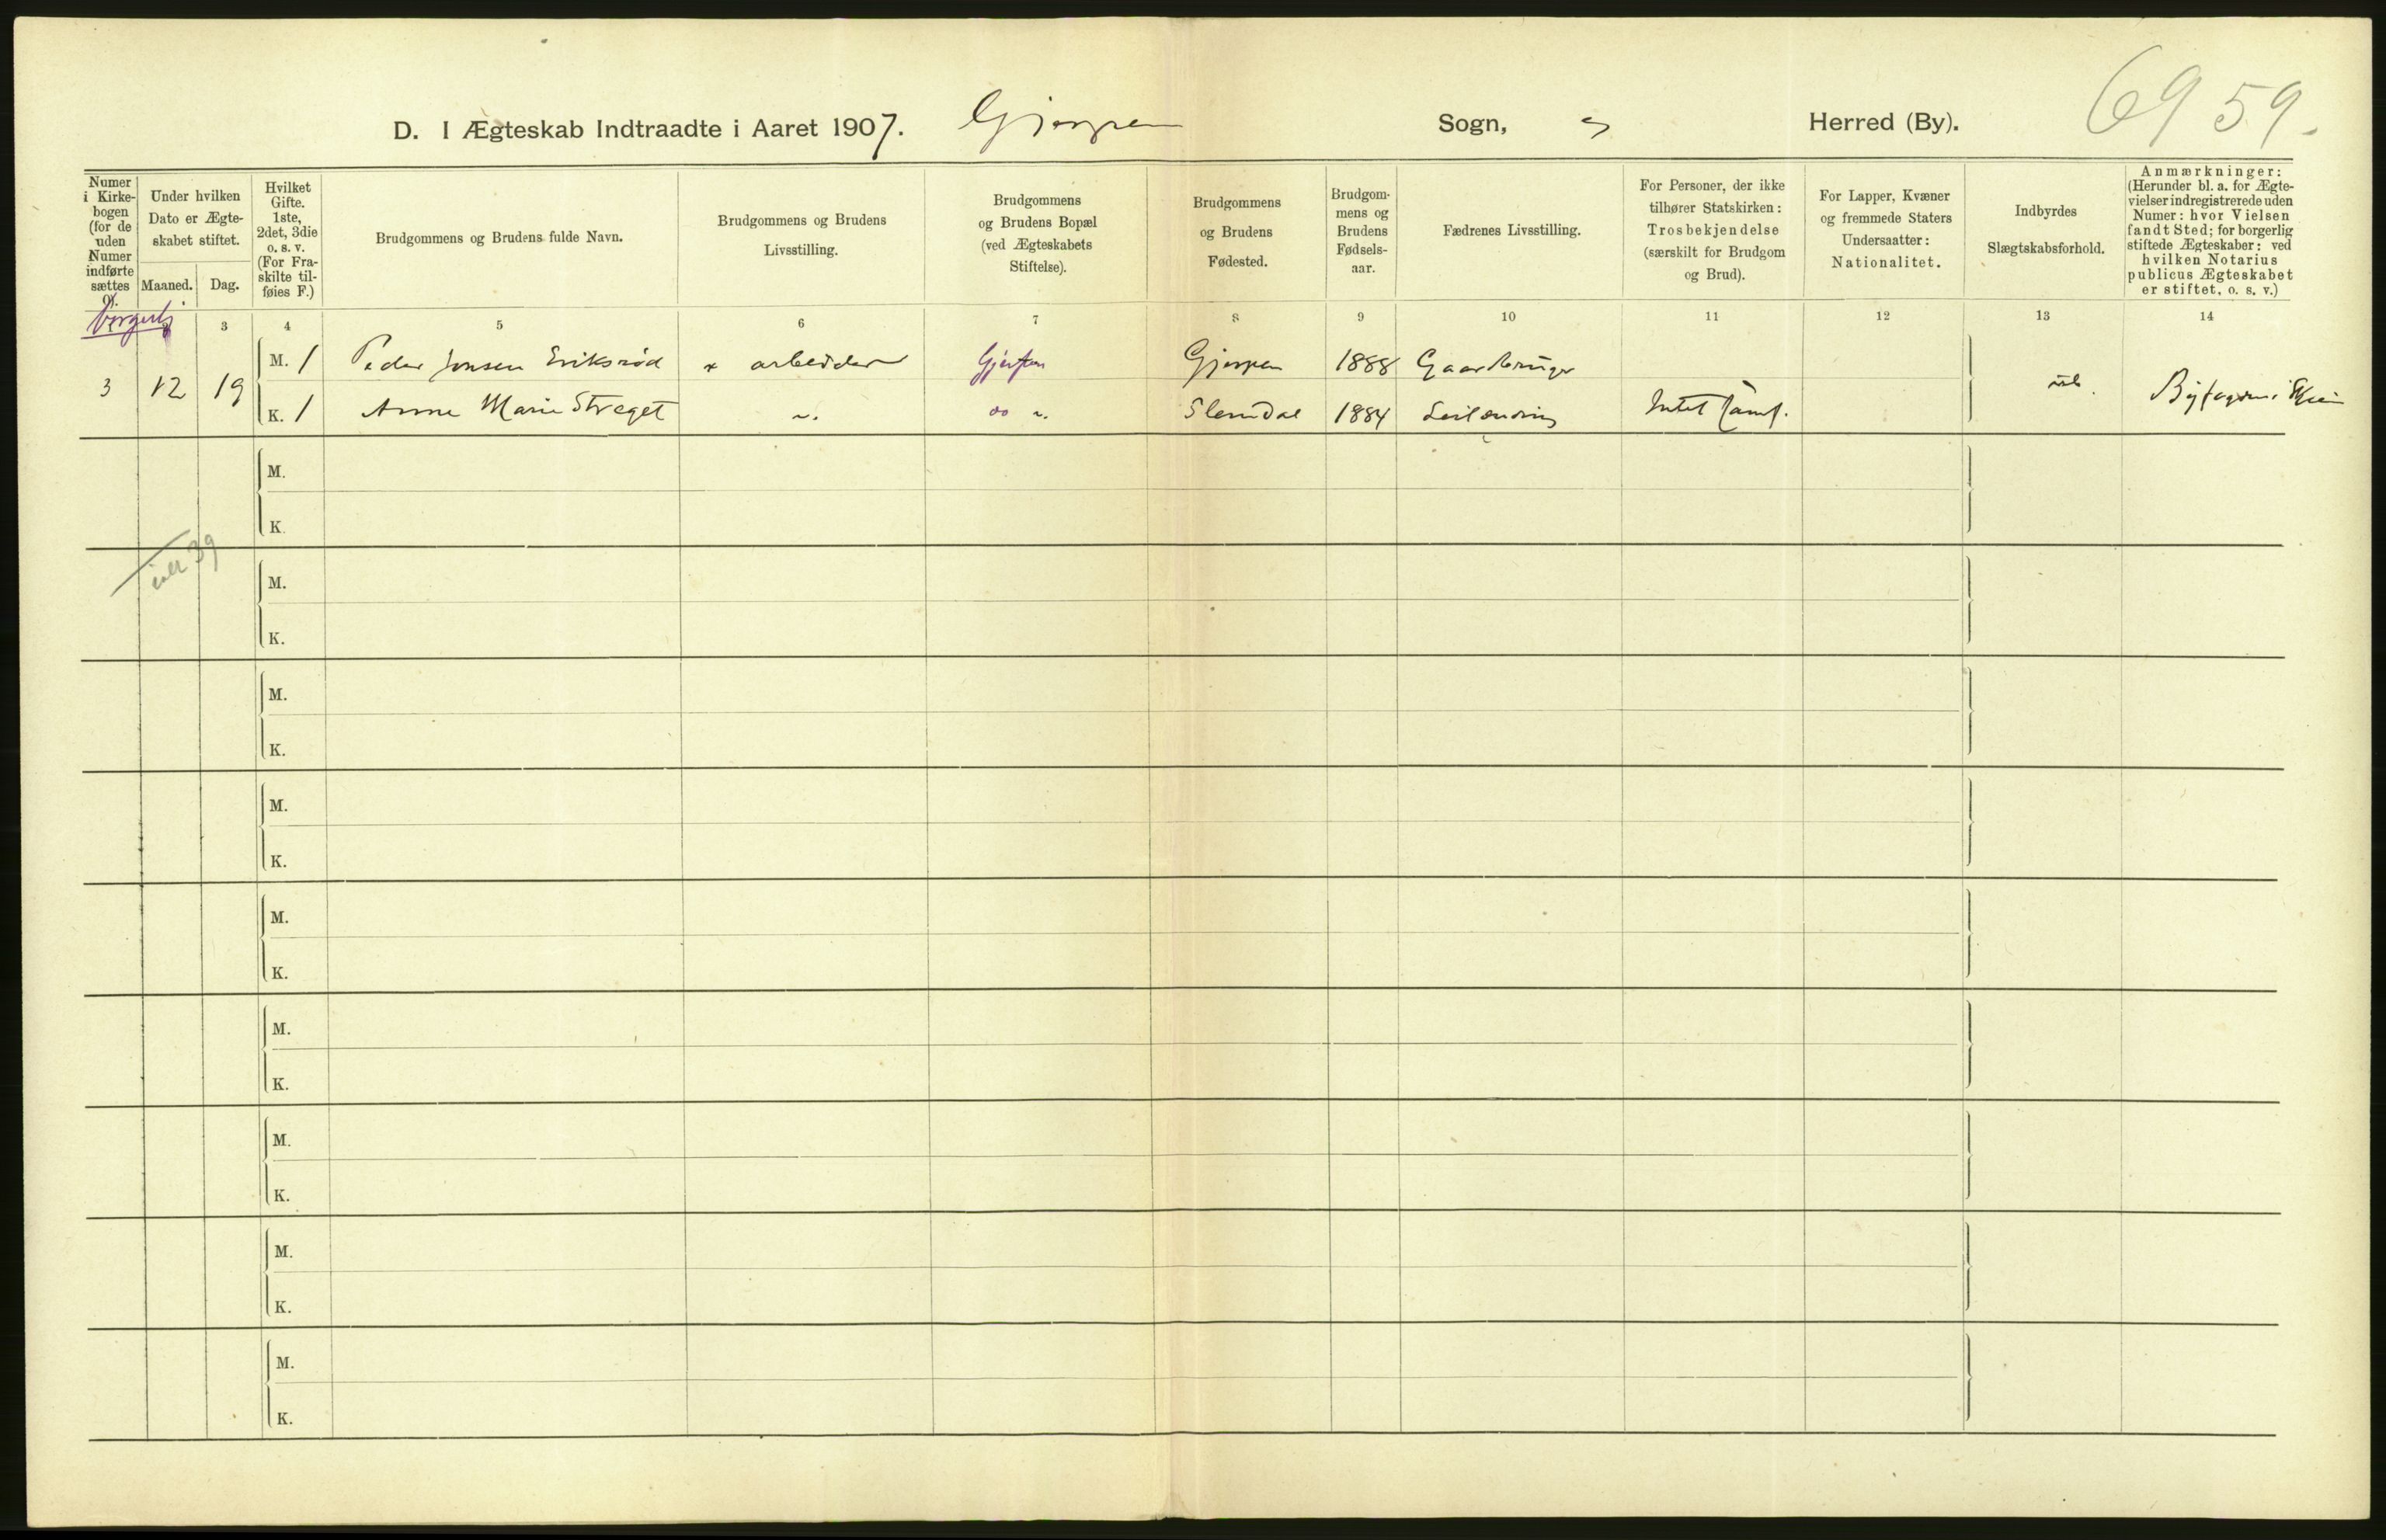 D. I Ægteskab Indtraadte i Aaret 1907. Gjerpen Sogn, Herred (By). 69 59.
Numer i Kirkebogen (for de uden Numer indførte sættes 0).
Under hvilken Dato er Ægteskabet stiftet.
Maaned. Dag.
Hvilket Gifte. 1ste, 2det, 3die o. s. v. (For Fraskilte tilføies F.)
Brudgommens og Brudens fulde Navn.
Brudgommens og Brudens Livsstilling.
Brudgommens og Brudens Bopæl (ved Ægteskabets Stiftelse).
Brudgommens og Brudens Fødested.
Brudgommens og Brudens Fødselsaar.
Fædrenes Livsstilling.
For Personer, der ikke tilhører Statskirken: Trosbekjendelse (særskilt for Brudgom og Brud).
For Lapper, Kvæner og fremmede Staters Undersaatter: Nationalitet.
Indbyrdes Slægtskabsforhold.
Anmærkninger: (Herunder bl. a. for Ægtevielser indregistrerede uden Numer: hvor Vielsen fandt Sted; for borgerlig stiftede Ægteskaber: ved hvilken Notarius publicus Ægteskabet er stiftet, o. s. v.)
Borgerlig
3 4 5 6 7 8 9 10 11 12 13 14
M. 1 Peder Jonsen Eriksrød x arbeider Gjerpen Gjerpen 1888 Gaardbruger
3 12 19
K. 1 Anne Marie Straget Slemdal 1884 Leilænding Intet Samf.
Byfogden i Skien
M.
K.
39
M.
K.
M.
K.
M.
K.
M.
K.
M.
K.
M.
K.
M.
K.
M.
K.